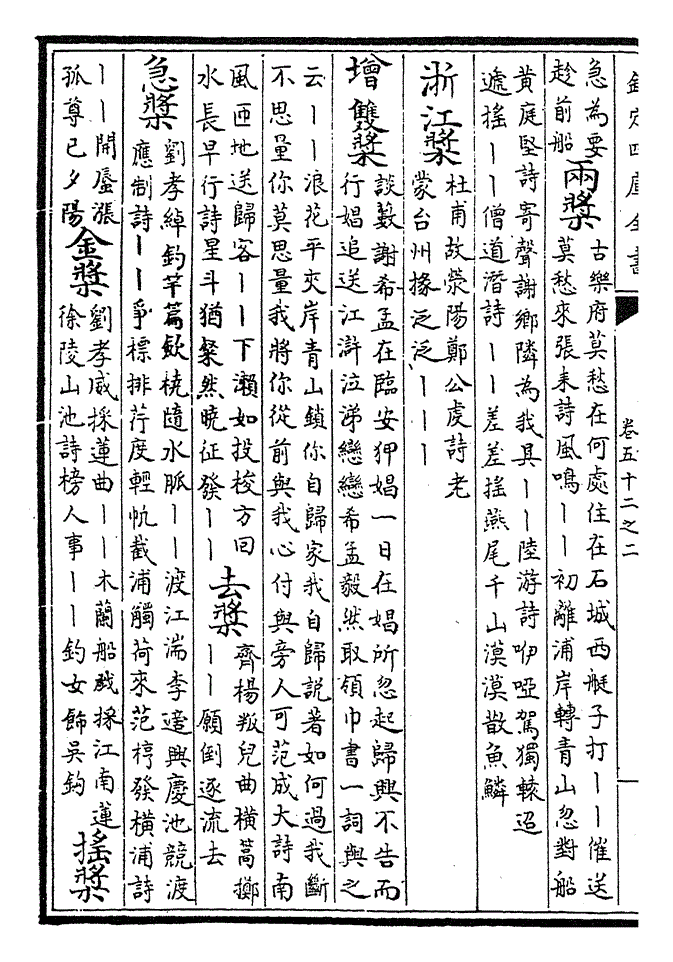 欽定四庫全書
卷五十二之二
急為要
趁前船
兩槳
古樂府莫愁在何處住在石城西艇子打丨丨催送
莫愁來張耒詩風鳴丨丨初離浦岸轉青山忽對船
黄庭堅詩寄聲謝鄉隣為我具丨丨陸游詩咿啞駕獨轅迢
遞搖丨丨僧道潛詩丨丨差差搖燕尾千山漠漠散魚鱗
浙江槳
杜甫故滎陽鄭公虔詩老
蒙台州掾泛泛丨丨丨
增
雙槳
談藪謝希孟在臨安狎娼一日在娼所忽起歸興不告而
行娼追送江滸泣涕戀戀希孟毅然取領巾書一詞與之
云丨丨浪花平夾岸青山鎖你自歸家我自歸説著如何過我斷
不思量你莫思量我將你從前與我心付與旁人可范成大詩南
風匝地送歸客丨丨下瀨如投梭方回
水長早行詩星斗猶粲然曉征發丨丨
去槳
齊楊叛兒曲橫篙擲
丨丨願倒逐流去
急槳
劉孝綽釣竿篇斂橈隨水脈丨丨渡江湍李遠興慶池競渡
應制詩丨丨爭標排荇度輕㠶截浦觸荷來范梈發橫浦詩
丨丨開蜃漲
孤尊已夕陽
金槳
劉孝威採蓮曲丨丨木蘭船戲採江南蓮
徐陵山池詩榜人事丨丨釣女飾吳鉤
搖槳